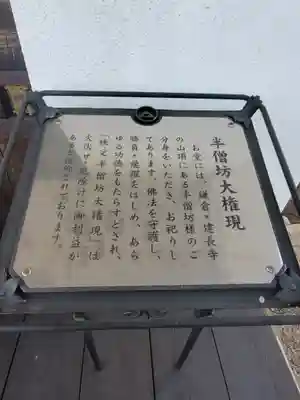 半僧坊大権現
お堂には、鎌倉・建長寺
の山頂にある半僧坊様のご
分身をいただき、お祀りし
てあります。佛法を守護し、
勝負・飛躍をはじめ、あら
ゆる功徳をもたらすとされ、
「狭之半僧坊大権現」は
御利益が
あると信仰されております。